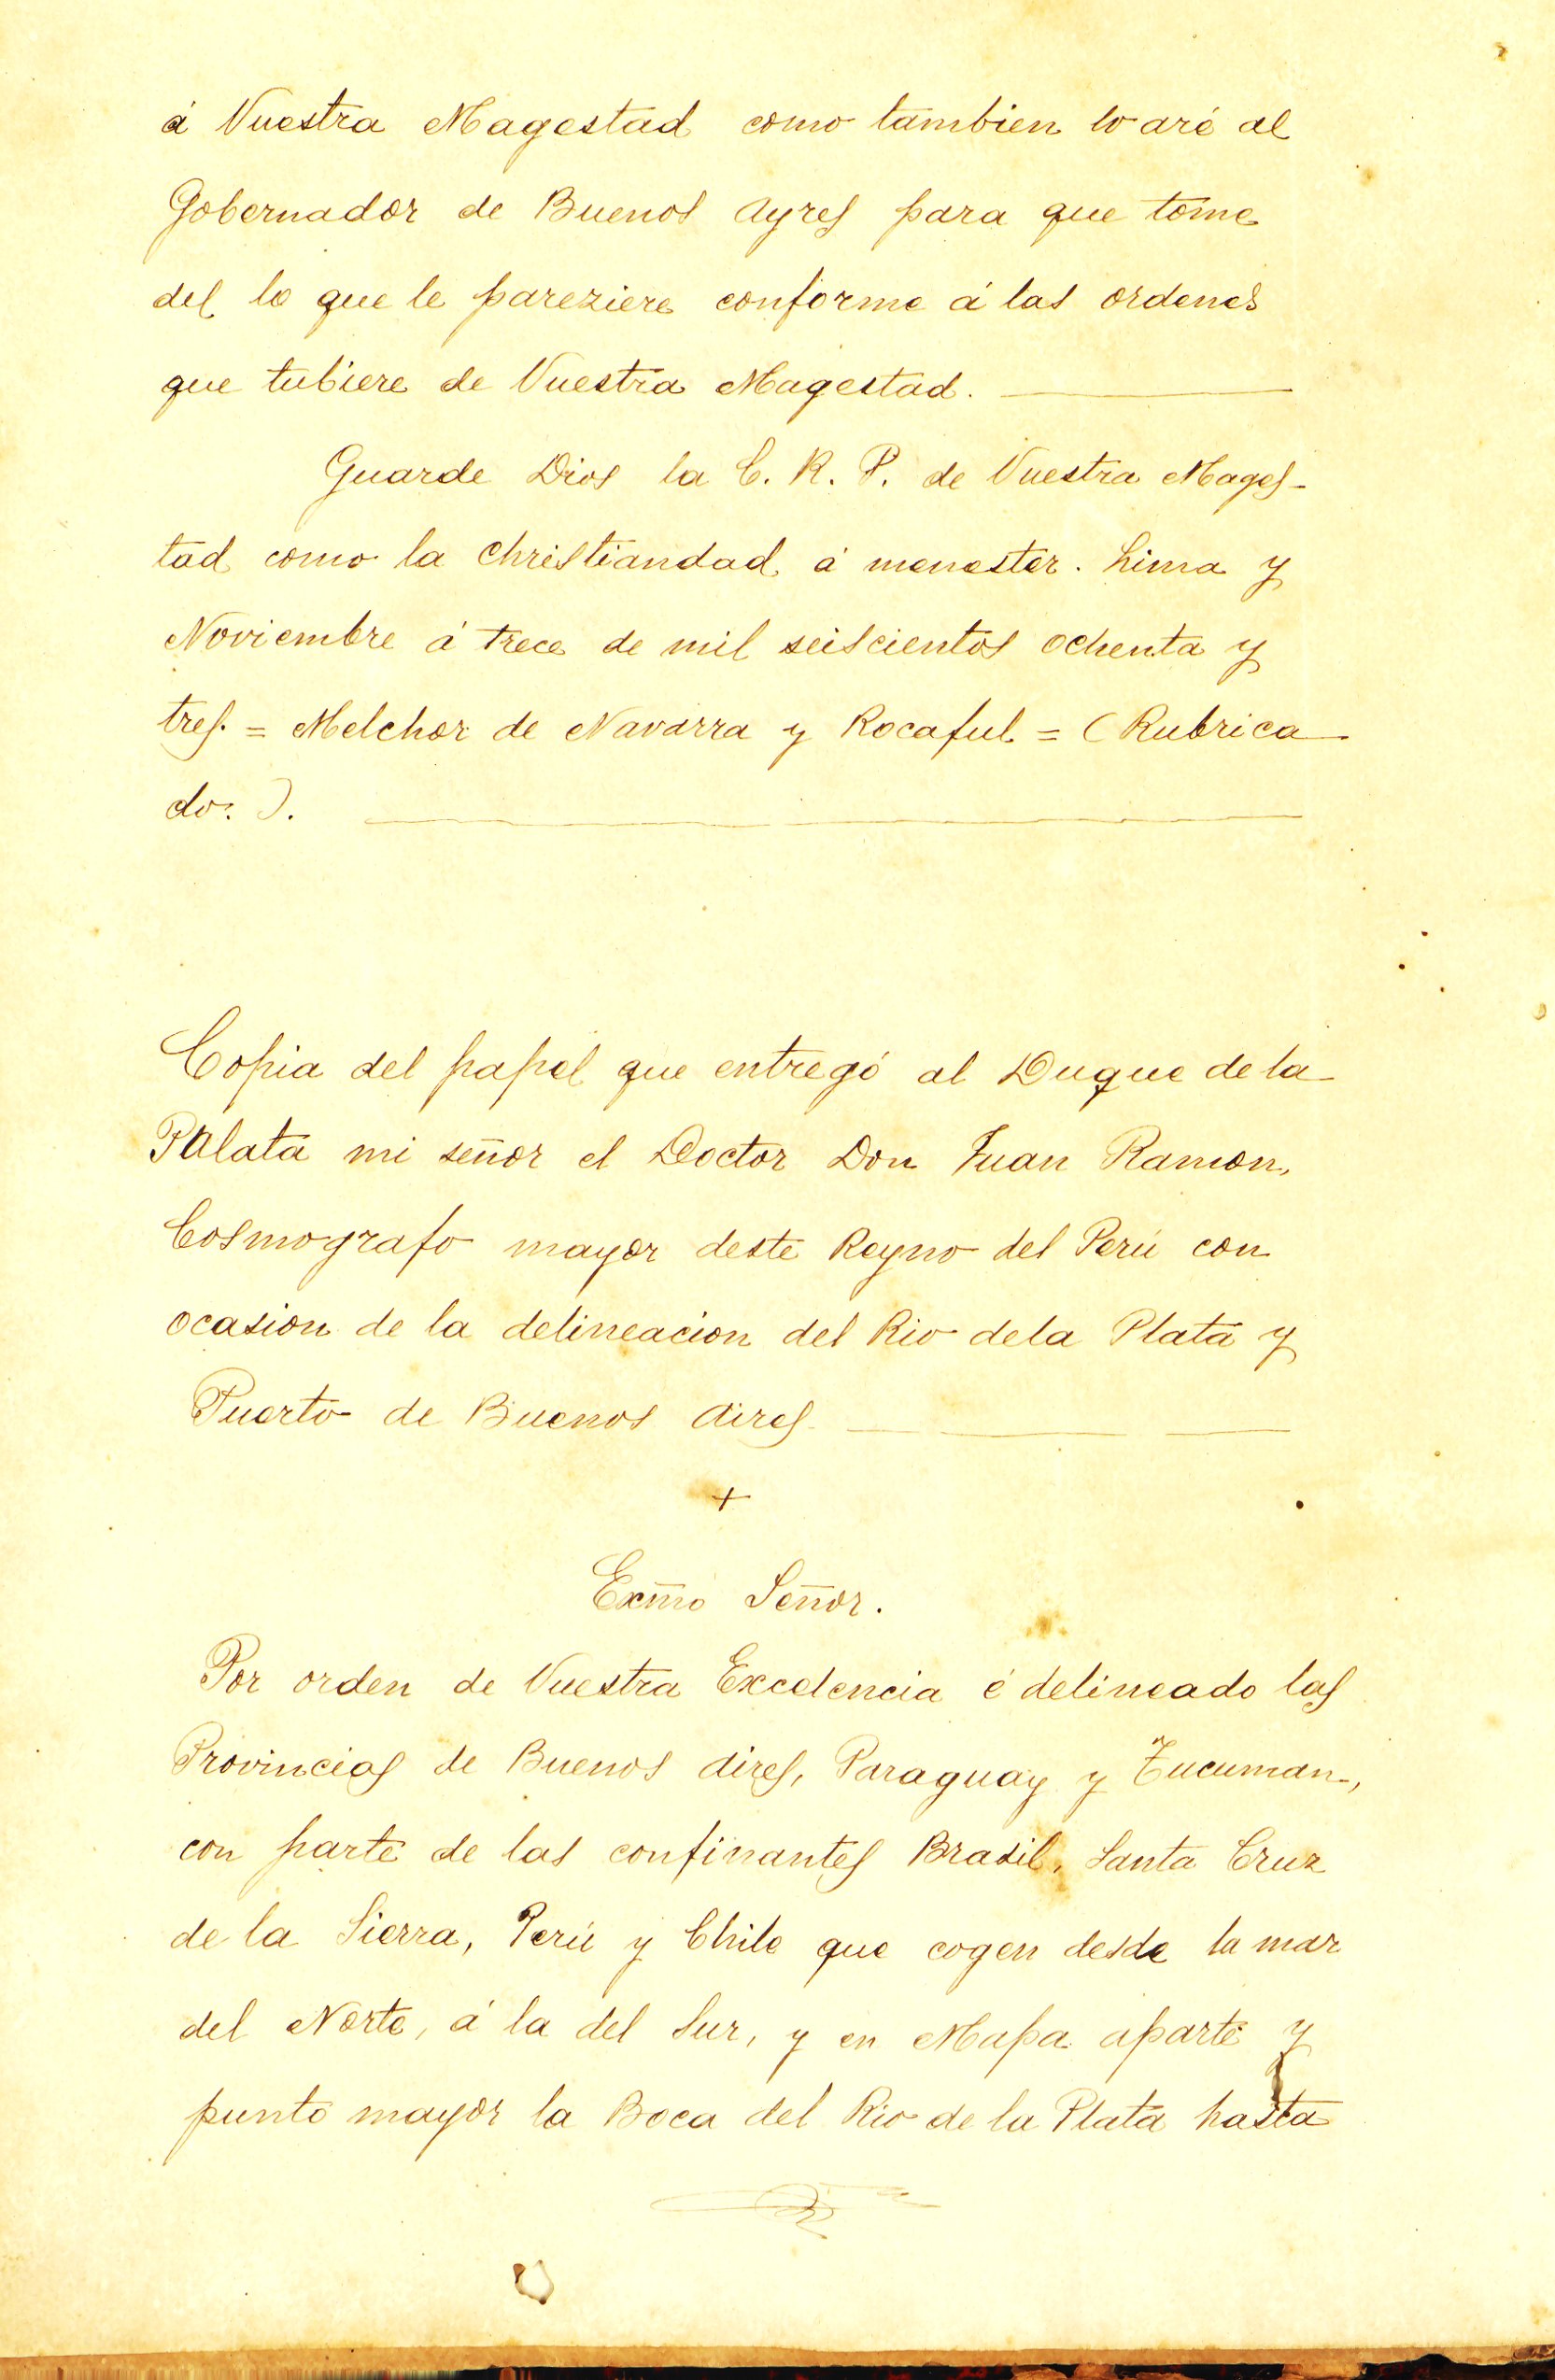 á Vuestra Magestad como tambien lo aré al
Gobernador de Buenos Ayres para que tome
del lo que le pareziere conforme á las ordenes
que tubiere de Vuestra Magestad.
Guarde Dios la C. R. P. de Vuestra Mages-
tad como la Christiandad á menester. Lima y
Noviembre á trece de mil seiscientos ochenta y
tres. = Melchor de Navarra y Rocaful = (Rubrica-
do:).
Copia del papel que entregó al Duque de la
Palata mi señor el Doctor Don Juan Ramon,
Cosmografo mayor deste Reyno del Perú con
ocasion de la delineacion del Rio dela Plata y
Puerto de Buenos Aires
+
Exm̃o Señor.
Por orden de Vuestra Excelencia é delineado las
Provincias de Buenos Aires, Paraguay y Tucuman,
con parte de las confinantes Brasil, Santa Cruz
de la Sierra, Perú y Chile que cogen desde la mar
del Norte, á la del Sur, y en Mapa aparte y
punto mayor la Boca del Rio de la Plata hasta